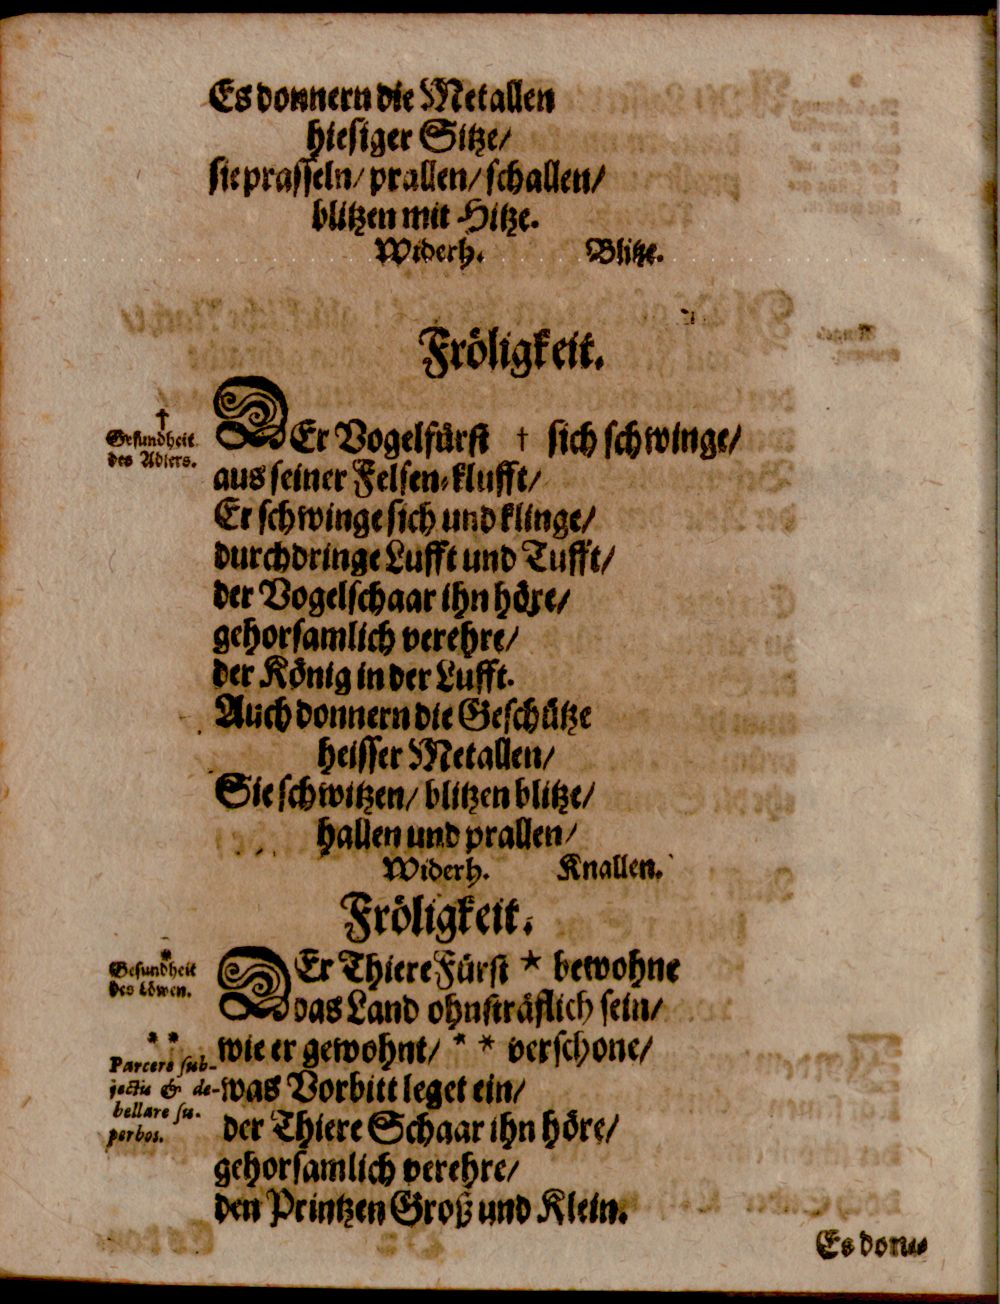 Es donnern die Metallen
hiesiger Sitze/
sie prasseln/ prallen/ schallen/
blitzen mit Hitze.
Widerh. Blitze.
Fröligkeit.
† Gesundheit des Adlers.
DEr Vogelfürst † sich schwinge/
aus seiner Felsen-klufft/
Er schwinge sich und klinge/
durchdringe Lufft und Tufft/
der Vogelschaar ihn höre/
gehorsamlich verehre/
der König in der Lufft.
Auch donnern die Geschütze
heisser Metallen/
Sie schwitzen/ blitzen blitze/
hallen und prallen/
Widerh. Knallen.
Fröligkeit.
* Gesundheit des Löwen.
DEr Thiere Fürst * bewohne
das Land ohnsträflich sein/
* * Parcere subjectis & debellare superbos.
wie er gewohnt/ * * verschone/
was Vorbitt leget ein/
der Thiere Schaar ihn höre/
gehorsamlich verehre/
den Printzen Groß und Klein.
Es don-